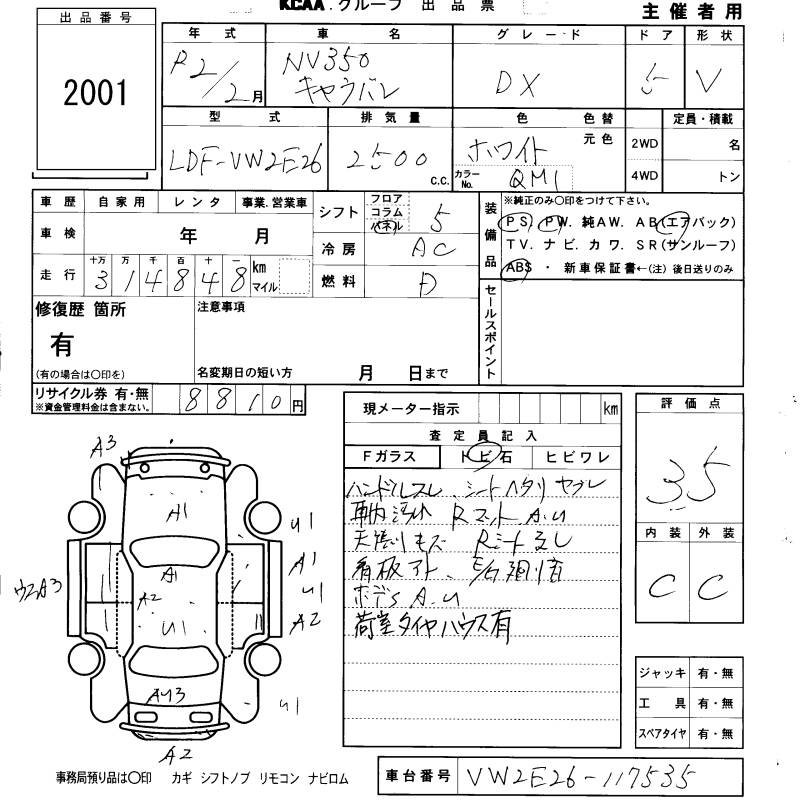 KCAA.グループ 出品票
主催者用
出品番号
2001
年式 車名 グレード ドア 形状
R2/2月 NV350 キャラバン DX 5 V
型式 排気量 色 色替 定員・積載
元色
LDF-VW2E26 2500 C.C. ホワイト 2WD 名
カラーNo. QM1 4WD トン
車歴 自家用 レンタ 事業.営業車
シフト フロア コラム パネル 5
車検 年 月
冷房 AC
走行 十万 万 千 百 十 一 km マイル
314848
燃料 D
装備品
※純正のみ〇印をつけて下さい。
PS. PW. 純AW. AB(エアバック)
TV. ナビ. カワ. SR(サンルーフ)
ABS ・ 新車保証書←(注) 後日送りのみ
修復歴 箇所
有
(有の場合は〇印を)
注意事項
名変期日の短い方 月 日まで
セールスポイント
リサイクル券 有・無
※資金管理料金は含まない。
8810円
現メーター指示 km
査定員記入
Fガラス トビ石 ヒビワレ
ハンドルスレ、シートヘタリ ヤブレ
車内汚れ Rマット A.U
天張りキズ Rシート
看板アト、E/G廻り音
ボデS A.U
荷室タイヤハウス有
評価点
3.5
内装 外装
C C
ジャッキ 有・無
工具 有・無
スペアタイヤ 有・無
A3
A1
U1
A1
A1
A2
U1
U1
A2
A3
AU3
U1
A2
事務局預り品は〇印 カギ シフトノブ リモコン ナビロム
車台番号 VW2E26-117535